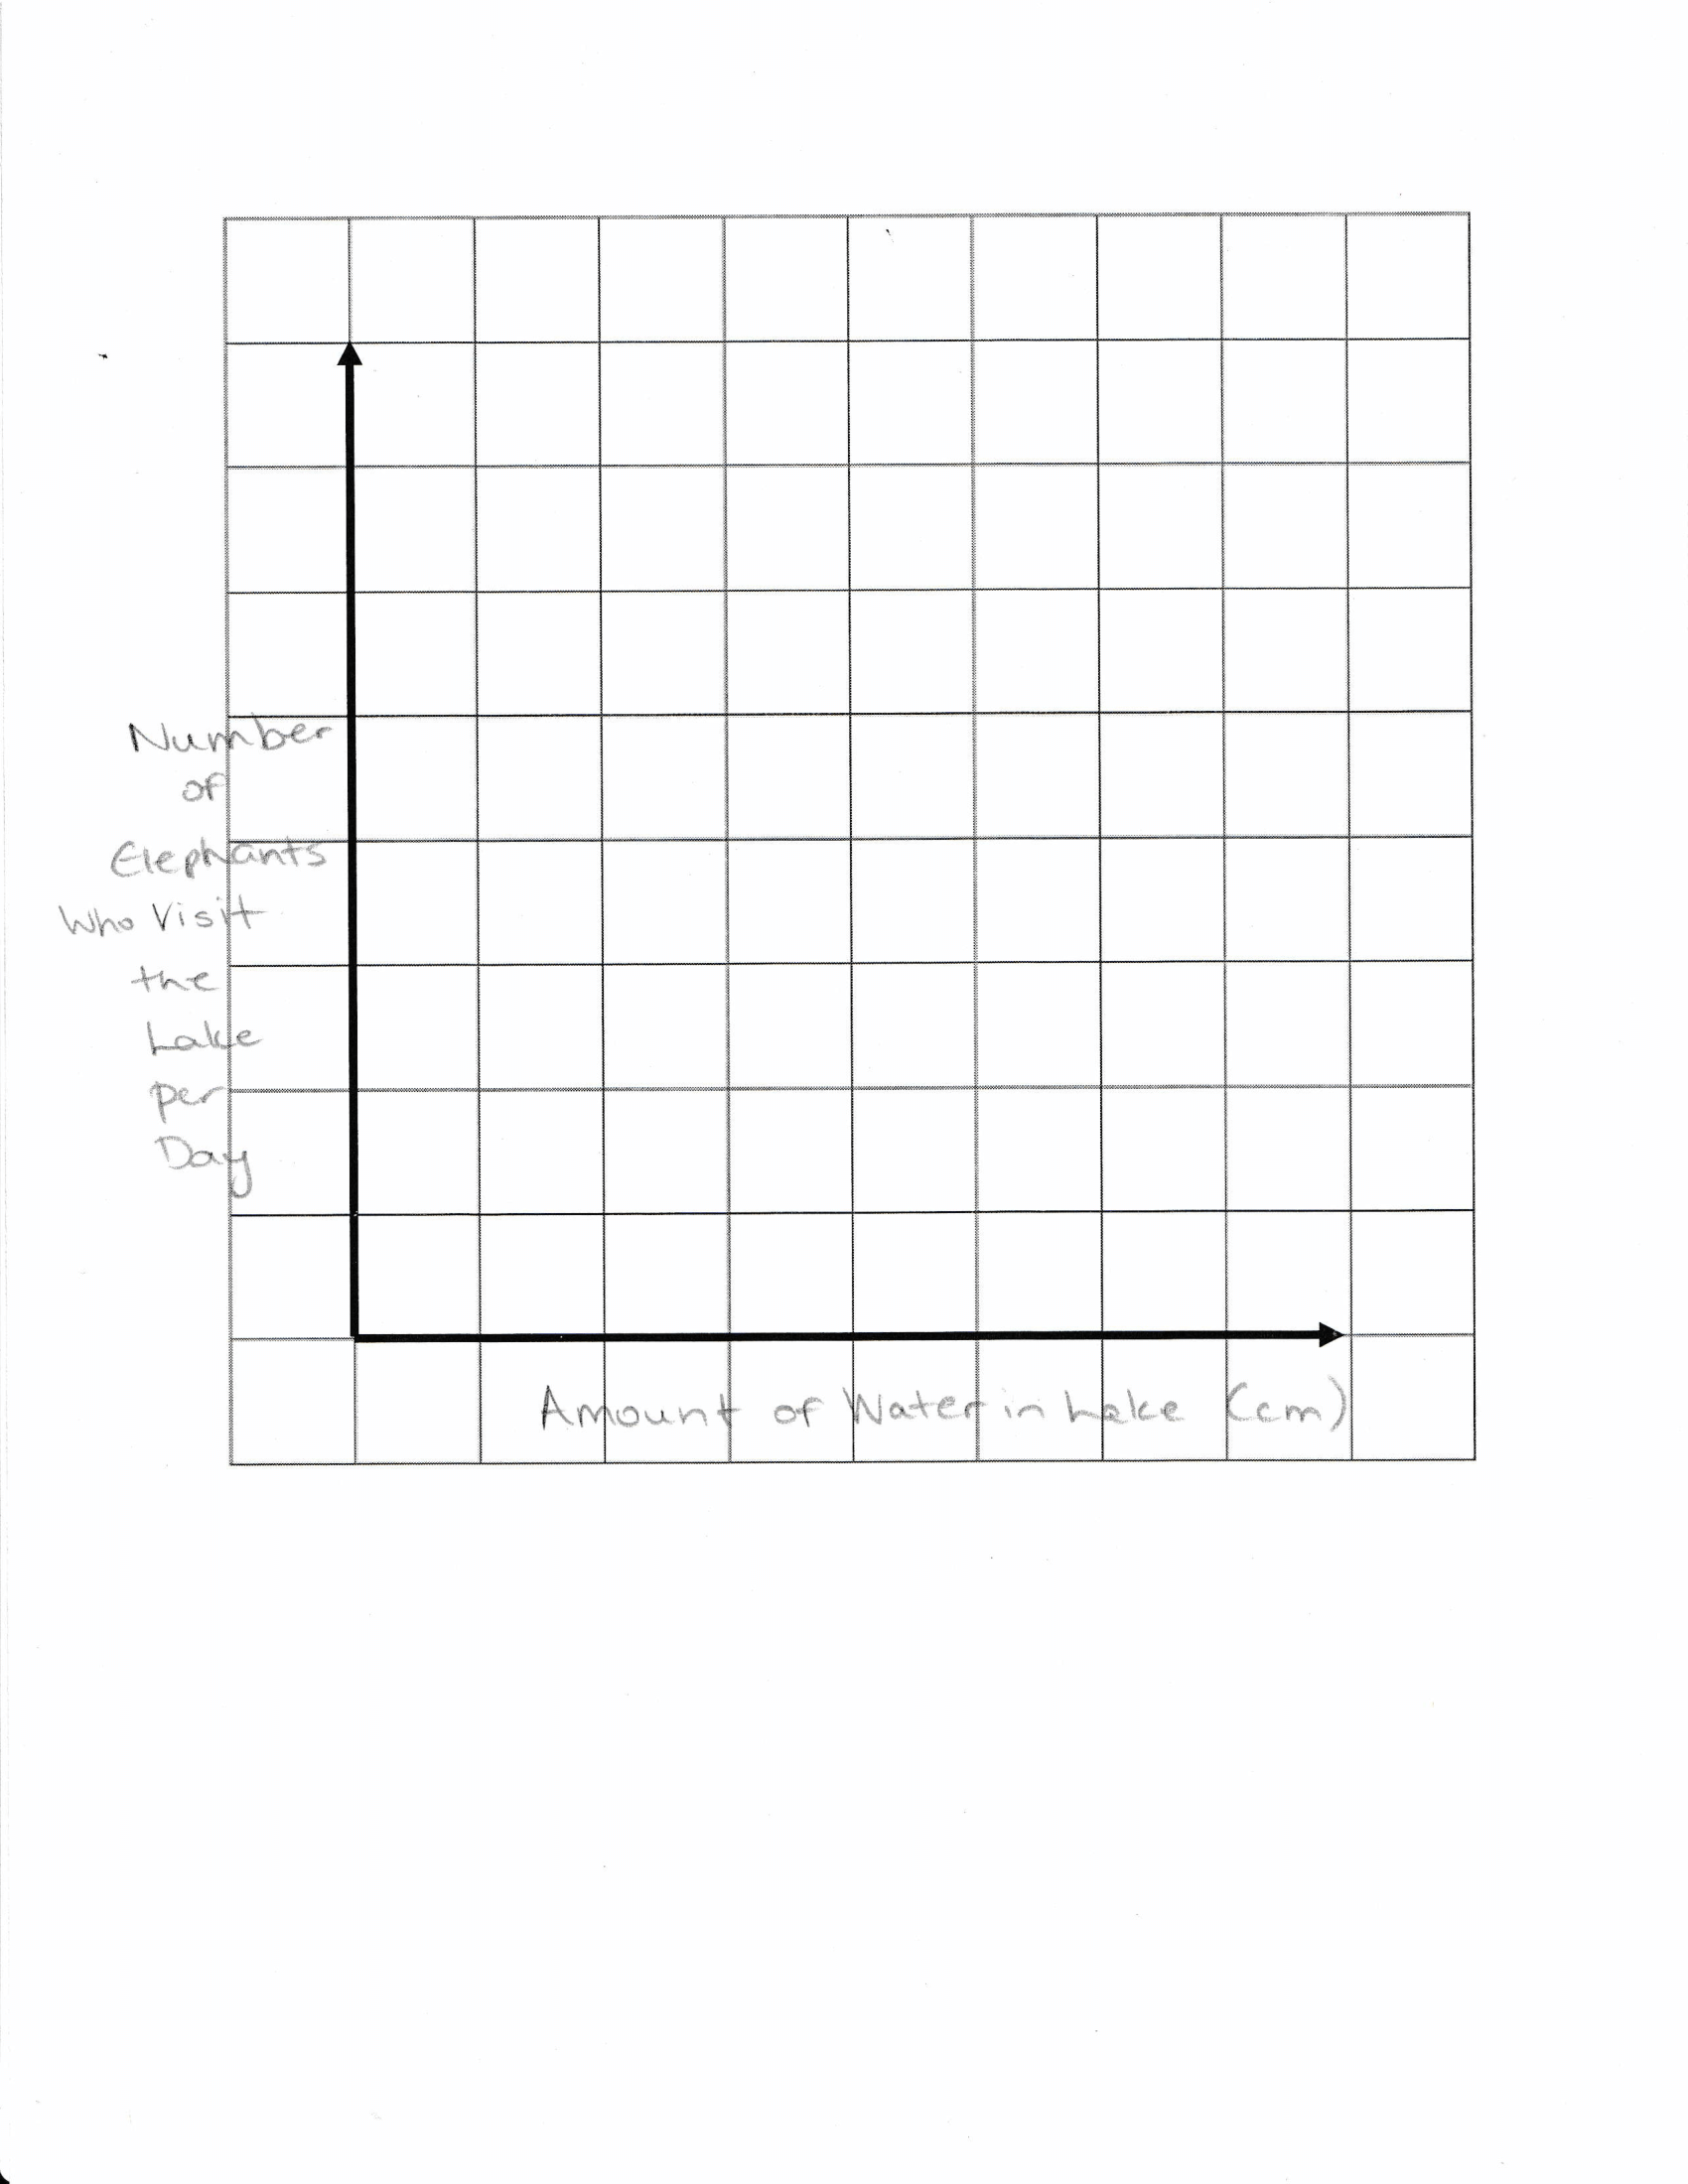 Number
of
Elephants
Who Visit
the
Lake
per
Day
Amount of Water in Lake (cm)